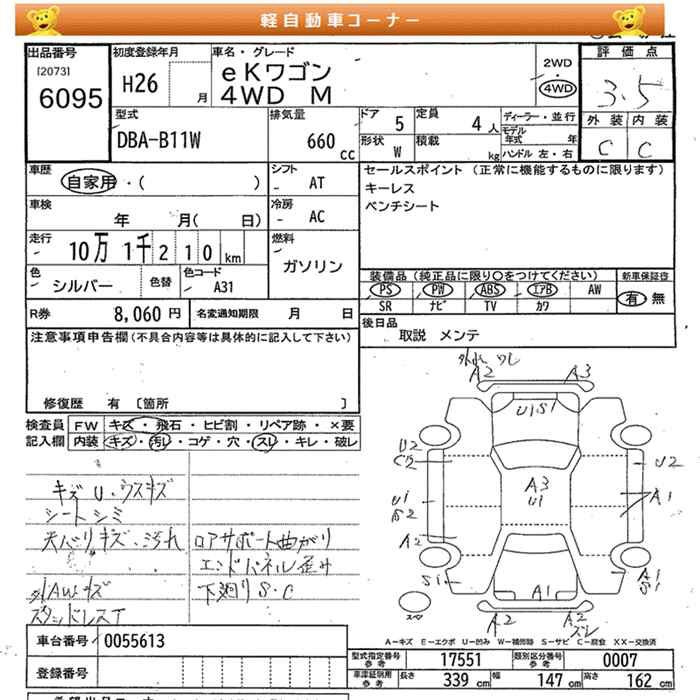 軽自動車コーナー
出品番号 初度登録年月 車名・グレード 評価点
[2073] 6095 H26 月 eKワゴン 2WD・4WD 3.5
4WD M
外装 内装
C C
型式 排気量 ドア 定員 ディーラー・並行
DBA-B11W 660cc 5 4人 モデル年式 年
形状 積載 ハンドル 左・右
W kg
車歴 シフト セールスポイント(正常に機能するものに限ります)
自家用・( ) AT キーレス
車検 冷房 ベンチシート
年 月( 日) AC
走行 燃料
10万1千210km ガソリン
色 色替 色コード 装備品(純正品に限り○をつけてください) 新車保証書
シルバー A31 PS PW ABS エアB AW 有 無
SR ナビ TV カワ
R券 8,060円 名変通知期限 月 日 後日品
取説 メンテ
注意事項申告欄(不具合内容等は具体的に記入して下さい)
修復歴 有 [箇所 ]
検査員 FW キズ・飛石・ヒビ割・リペア跡・×要
記入欄 内装 キズ・汚れ・コゲ・穴・スレ・キレ・破レ
キズ U・ウスキズ
シートシミ
天バリキズ・汚れ ロアサポート曲がり
エンドパネル歪み
外AWキズ 下廻りS・C
スタッドレスT
A2 A3
U1S1
U2 U2
A3
U1
U1 A1
S2
A2
S1 A1
S1
A1
スペア
A2 A2
ズレ
A-キズ E-エクボ U-凹み W-補修跡 S-サビ C-腐食 XX-交換済
車台番号 0055613 型式指定番号 参考 17551 類別区分番号 参考 0007
登録番号 車庫証明用 参考 長さ 339cm 幅 147cm 高さ 162cm